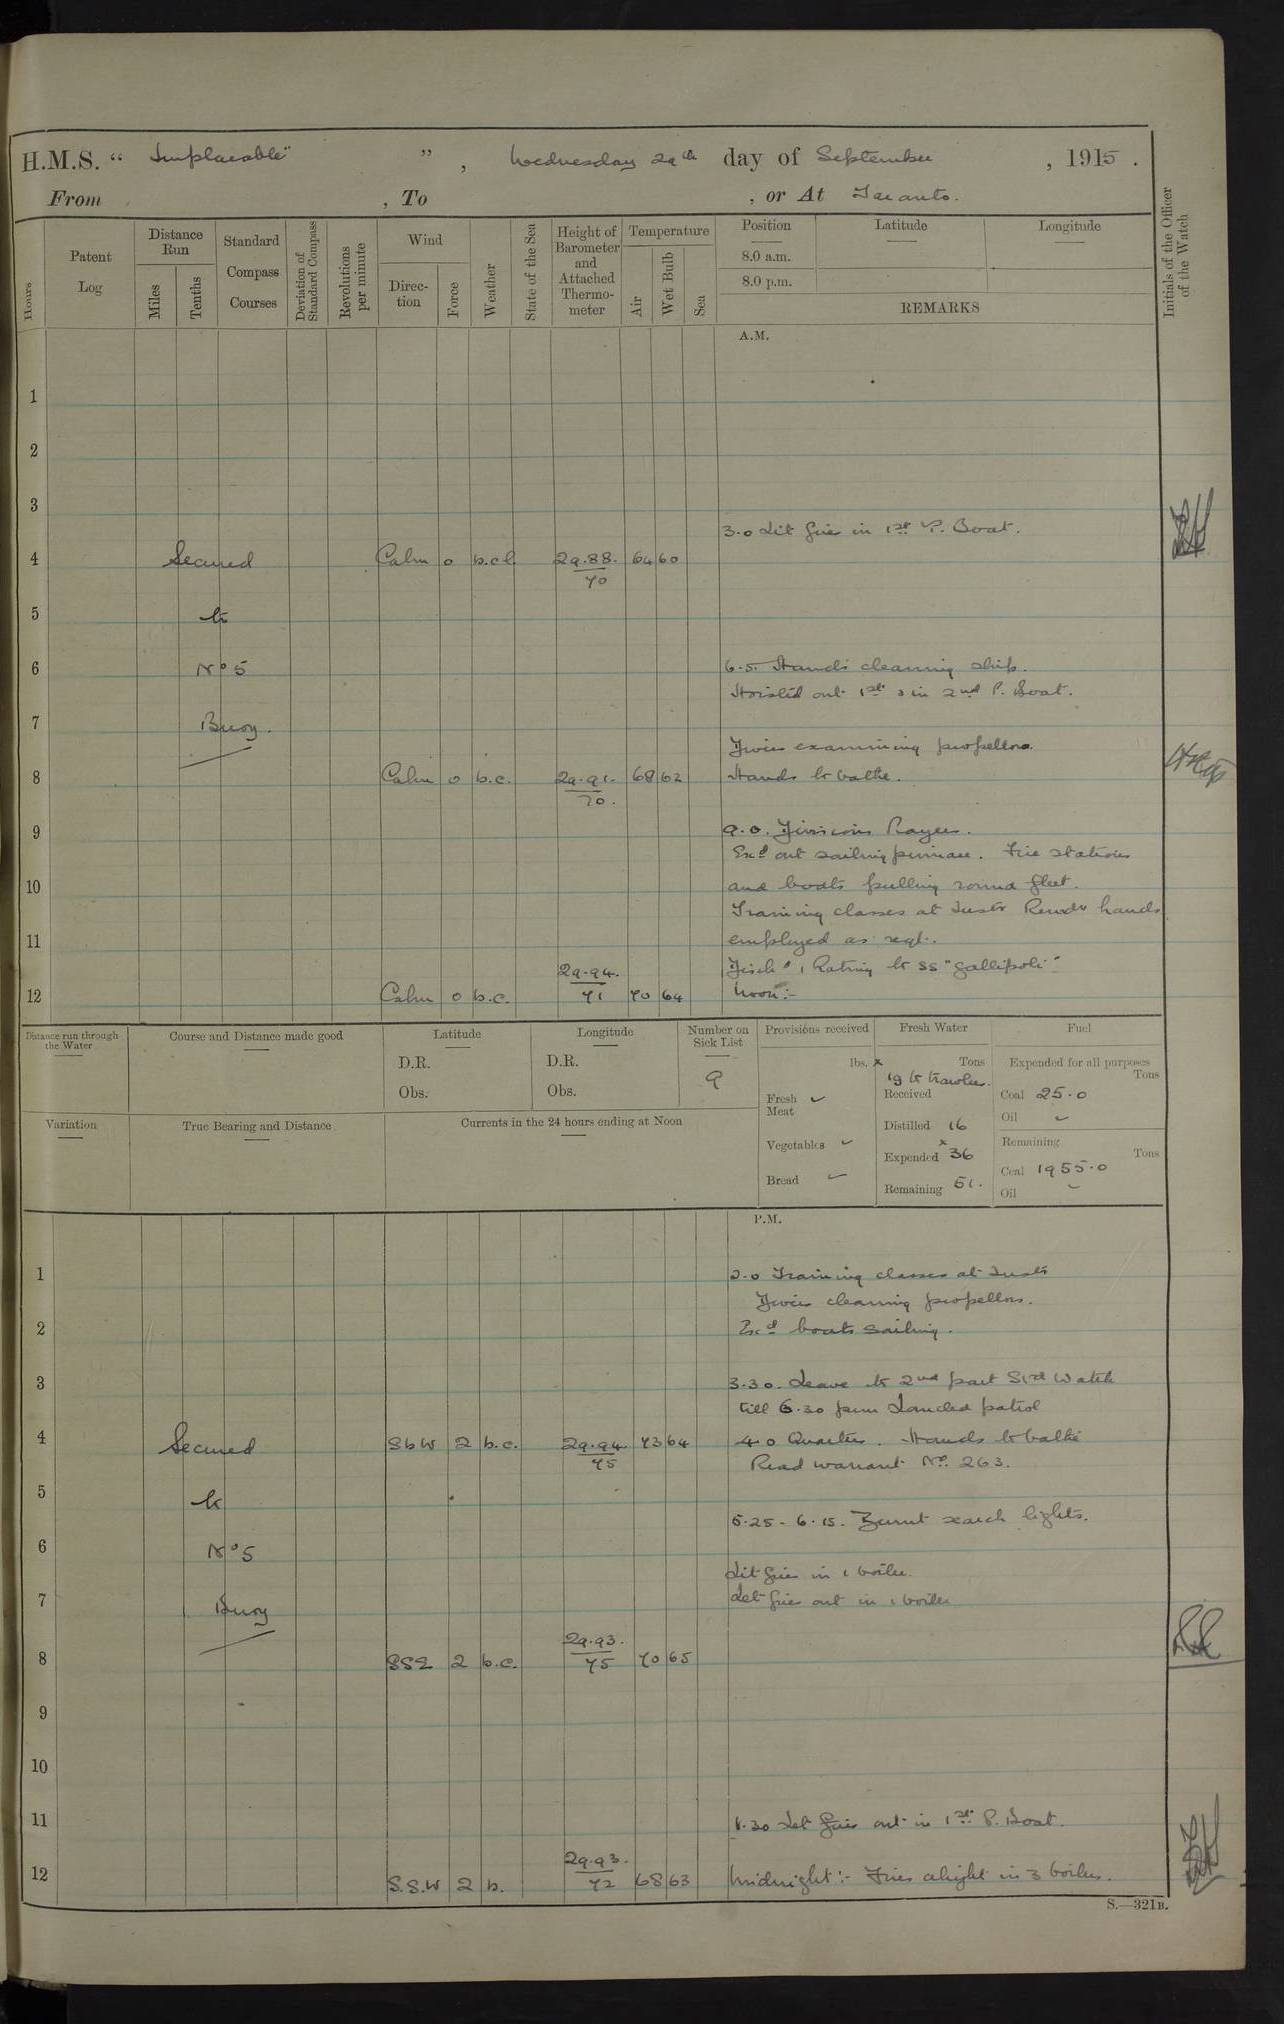 H.M.S. " Implacable" ", Wednesday 29th day of September, 1915.
From , To , or At Taranto.
Hours
Patent Log
Distance Run
Miles
Tenths
Standard Compass Courses
Deviation of Standard Compass
Revolutions per minute
Wind
Direc-tion
Force
Weather
State of the Sea
Height of Barometer and Attached Thermo-meter
Temperature
Air
Wet Bulb
Sea
Position
8.0 a.m.
8.0 p.m.
Latitude
Longitude
REMARKS
Initials of the Officer of the Watch
A.M.
1
2
3
3.0 Lit fires in 1st P. Boat.
4 Secured Calm 0 b.c.l. 29.88. 64 60
70
5 to
6 No 5 6.5. Hands cleaning ship.
Hoisted out 1st & in 2nd P. Boat.
7 Buoy.
Divers examining propellors.
8 Calm 0 b.c. 29.91. 68 62 Hands to bathe.
70.
9 9.0. Divisions Prayers.
Excd out sailing pinnace. Fire stations
10 and boats pulling round fleet.
Training classes at Instr Remdr hands
11 employed as reqt.
29.94. Disch'd 1 Rating to SS "Gallipoli"
12 Calm 0 b.c. 71 70 64 Noon:-
Distance run through the Water
Course and Distance made good
Latitude
D.R.
Obs.
Longitude
D.R.
Obs.
Number on Sick List
9
Provisions received
lbs.
Fresh Meat ✓
Vegetables ✓
Bread ✓
Fresh Water
Tons
x 19 to trawler.
Received
Distilled 16
Expended x 36
Remaining 51.
Fuel
Expended for all purposes
Tons
Coal 25.0
Oil ✓
Remaining
Tons
Coal 1955.0
Oil ✓
Variation
True Bearing and Distance
Currents in the 24 hours ending at Noon
P.M.
1 2.0 Training classes at Instr
Divers cleaning propellors.
2 Excd boats sailing.
3 3.30. Leave to 2nd part Std Watch
till 6.30 pm Landed patrol
4 Secured SbW 2 b.c. 29.94 73 64 4.0 Quarters. Hands to bathe
75 Read warrant No. 263.
5 to
5.25 - 6.15. Burnt search lights.
6 No 5
Lit fires in 1 boiler.
7 Buoy Let fires out in 1 boiler
29.93.
8 SSE 2 b.c. 75 70 65
9
10
11 .30 Let fires out in 1st P. Boat.
29.93.
12 S.S.W 2 b. 72 68 63 Midnight:- Fires alight in 3 boilers.
S.—321B.